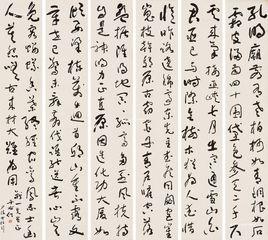 孔明廟前有老柏柯如青銅根如石
霜皮溜雨四十圍黛色參天二千尺
雲來氣接巫峽長月出寒通雪山白
君臣已與時際會樹木猶為人愛惜
憶昨路繞錦亭東先主武侯同閟宮
崔嵬枝幹郊原古窈窕丹青戶牖空落
落盤踞雖得地冥冥孤高多烈風扶持
自是神明力正直原因造化功大廈如
傾要梁棟萬牛回首丘山重不露文
章世已驚未辭翦伐誰能送苦心豈
免容螻蟻香葉終經宿鸞鳳志士幽
人莫怨嗟古來材大難為用